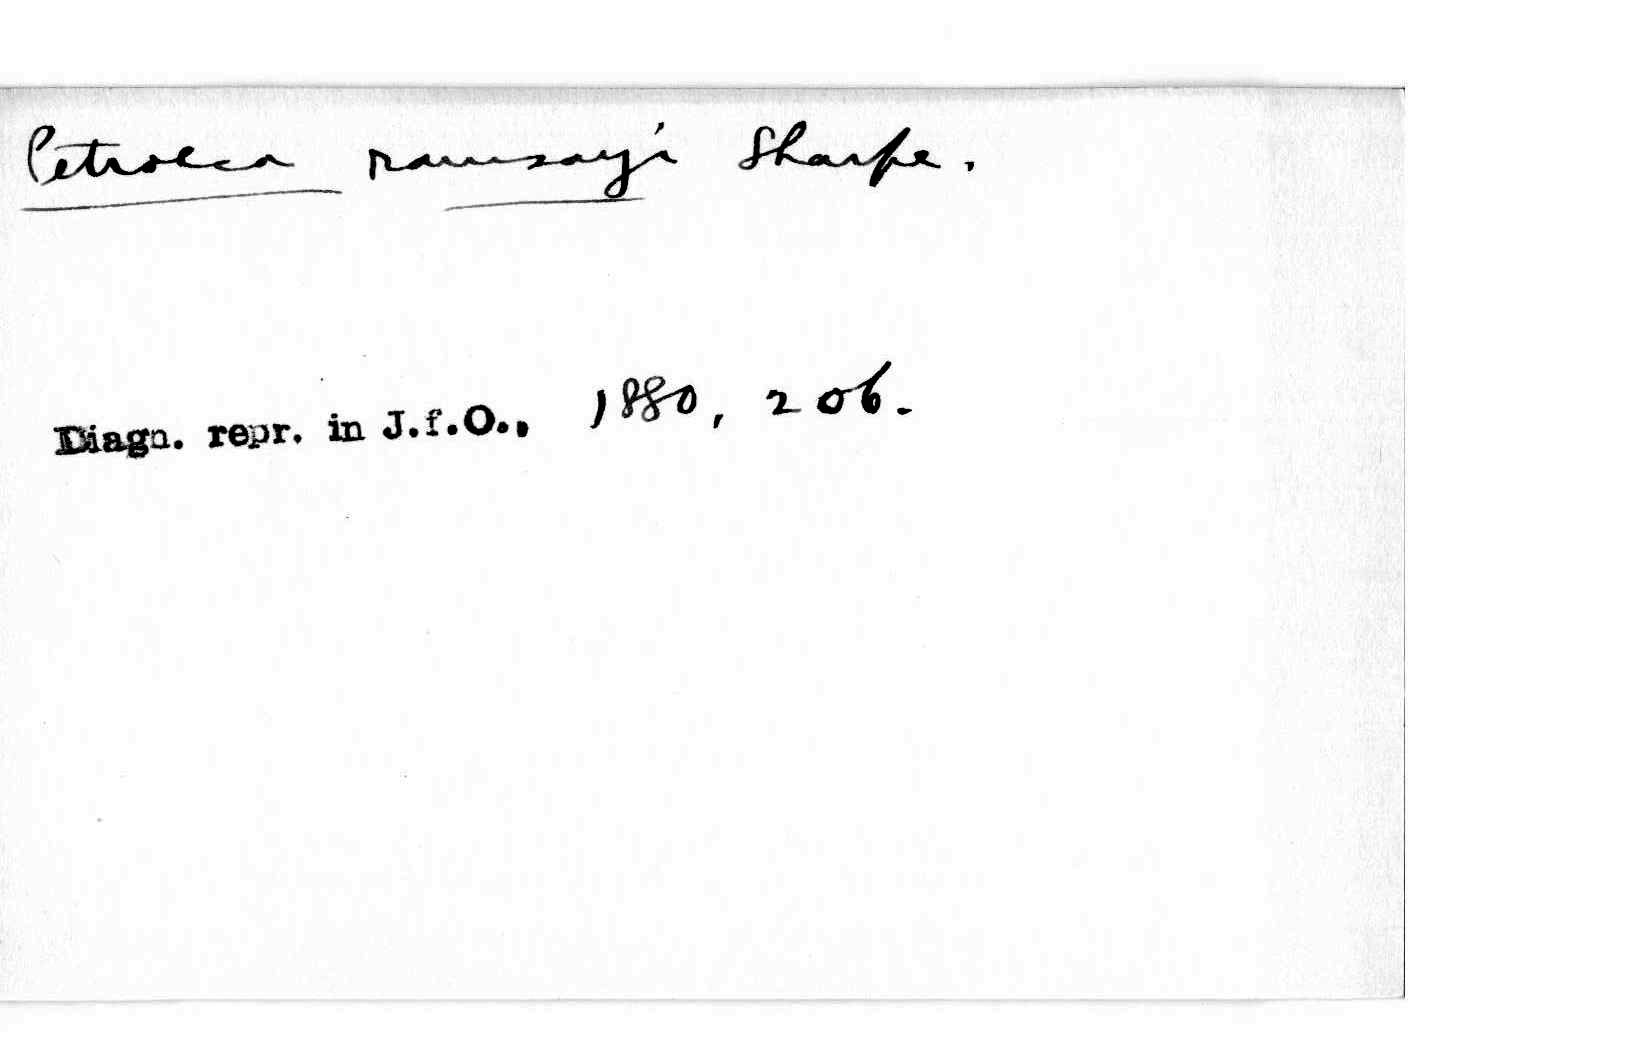 Petroeca ramsayi Sharpe.
Diagn. repr. in J.f.O., 1880, 206.